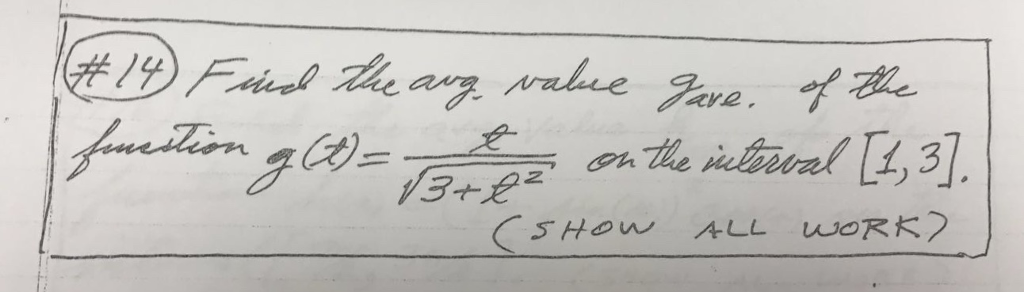 #14 Find the avg. value gave. of the
function g(t) = t/√3+t² on the interval [1,3].
(SHOW ALL WORK)